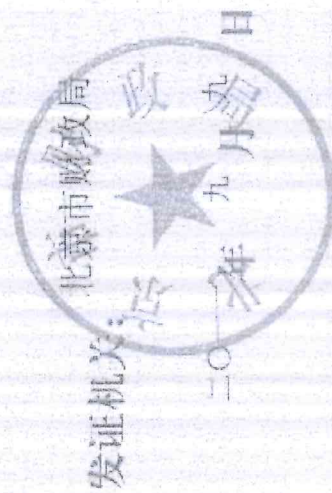 发证机关：北京市财政局
二〇 年九月九日